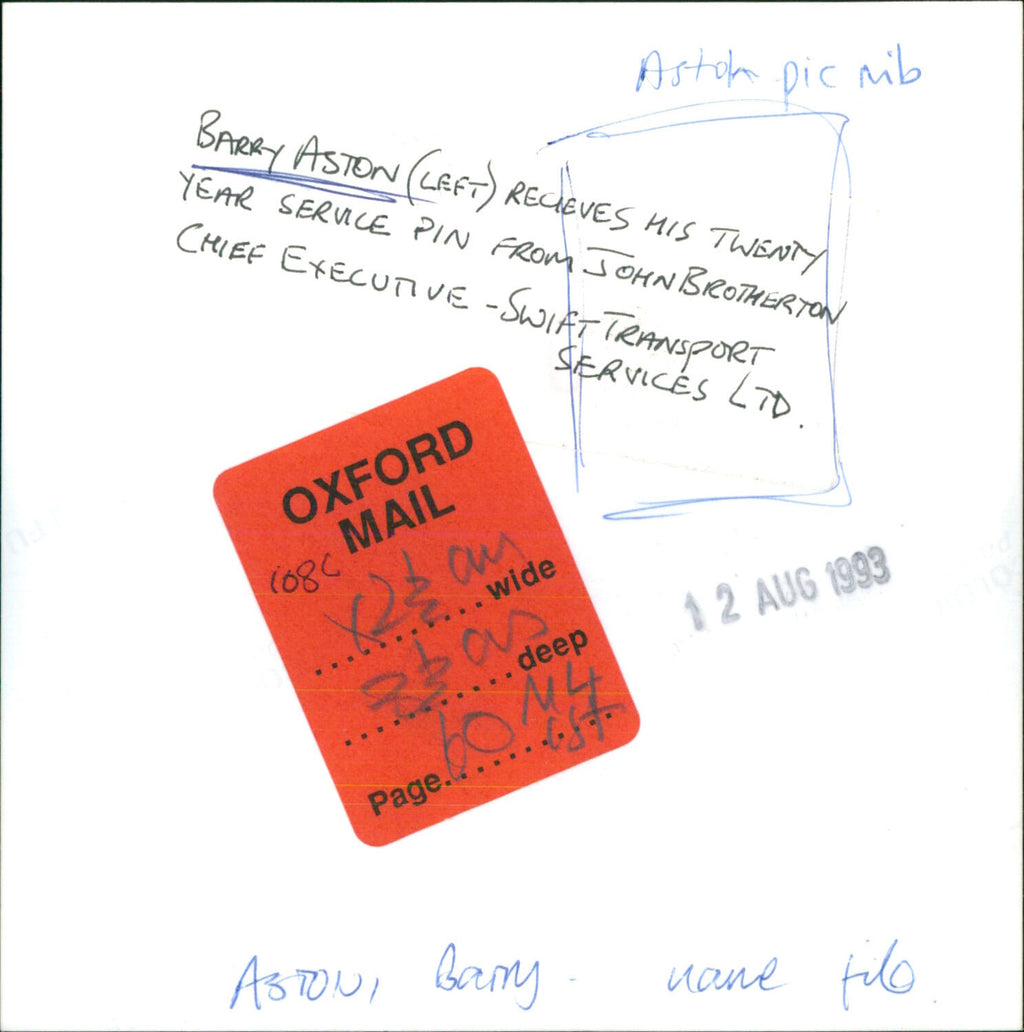 Aston pic nib
BARRY ASTON (LEFT) RECIEVES HIS TWENTY
YEAR SERVICE PIN FROM JOHN BROTHERTON
CHIEF EXECUTIVE - SWIFT TRANSPORT
SERVICES LTD.
OXFORD
MAIL
108c
x2½ cm
..........wide
cms
..........deep
Page..........
12 AUG 1993
ASTON, Barry - name file